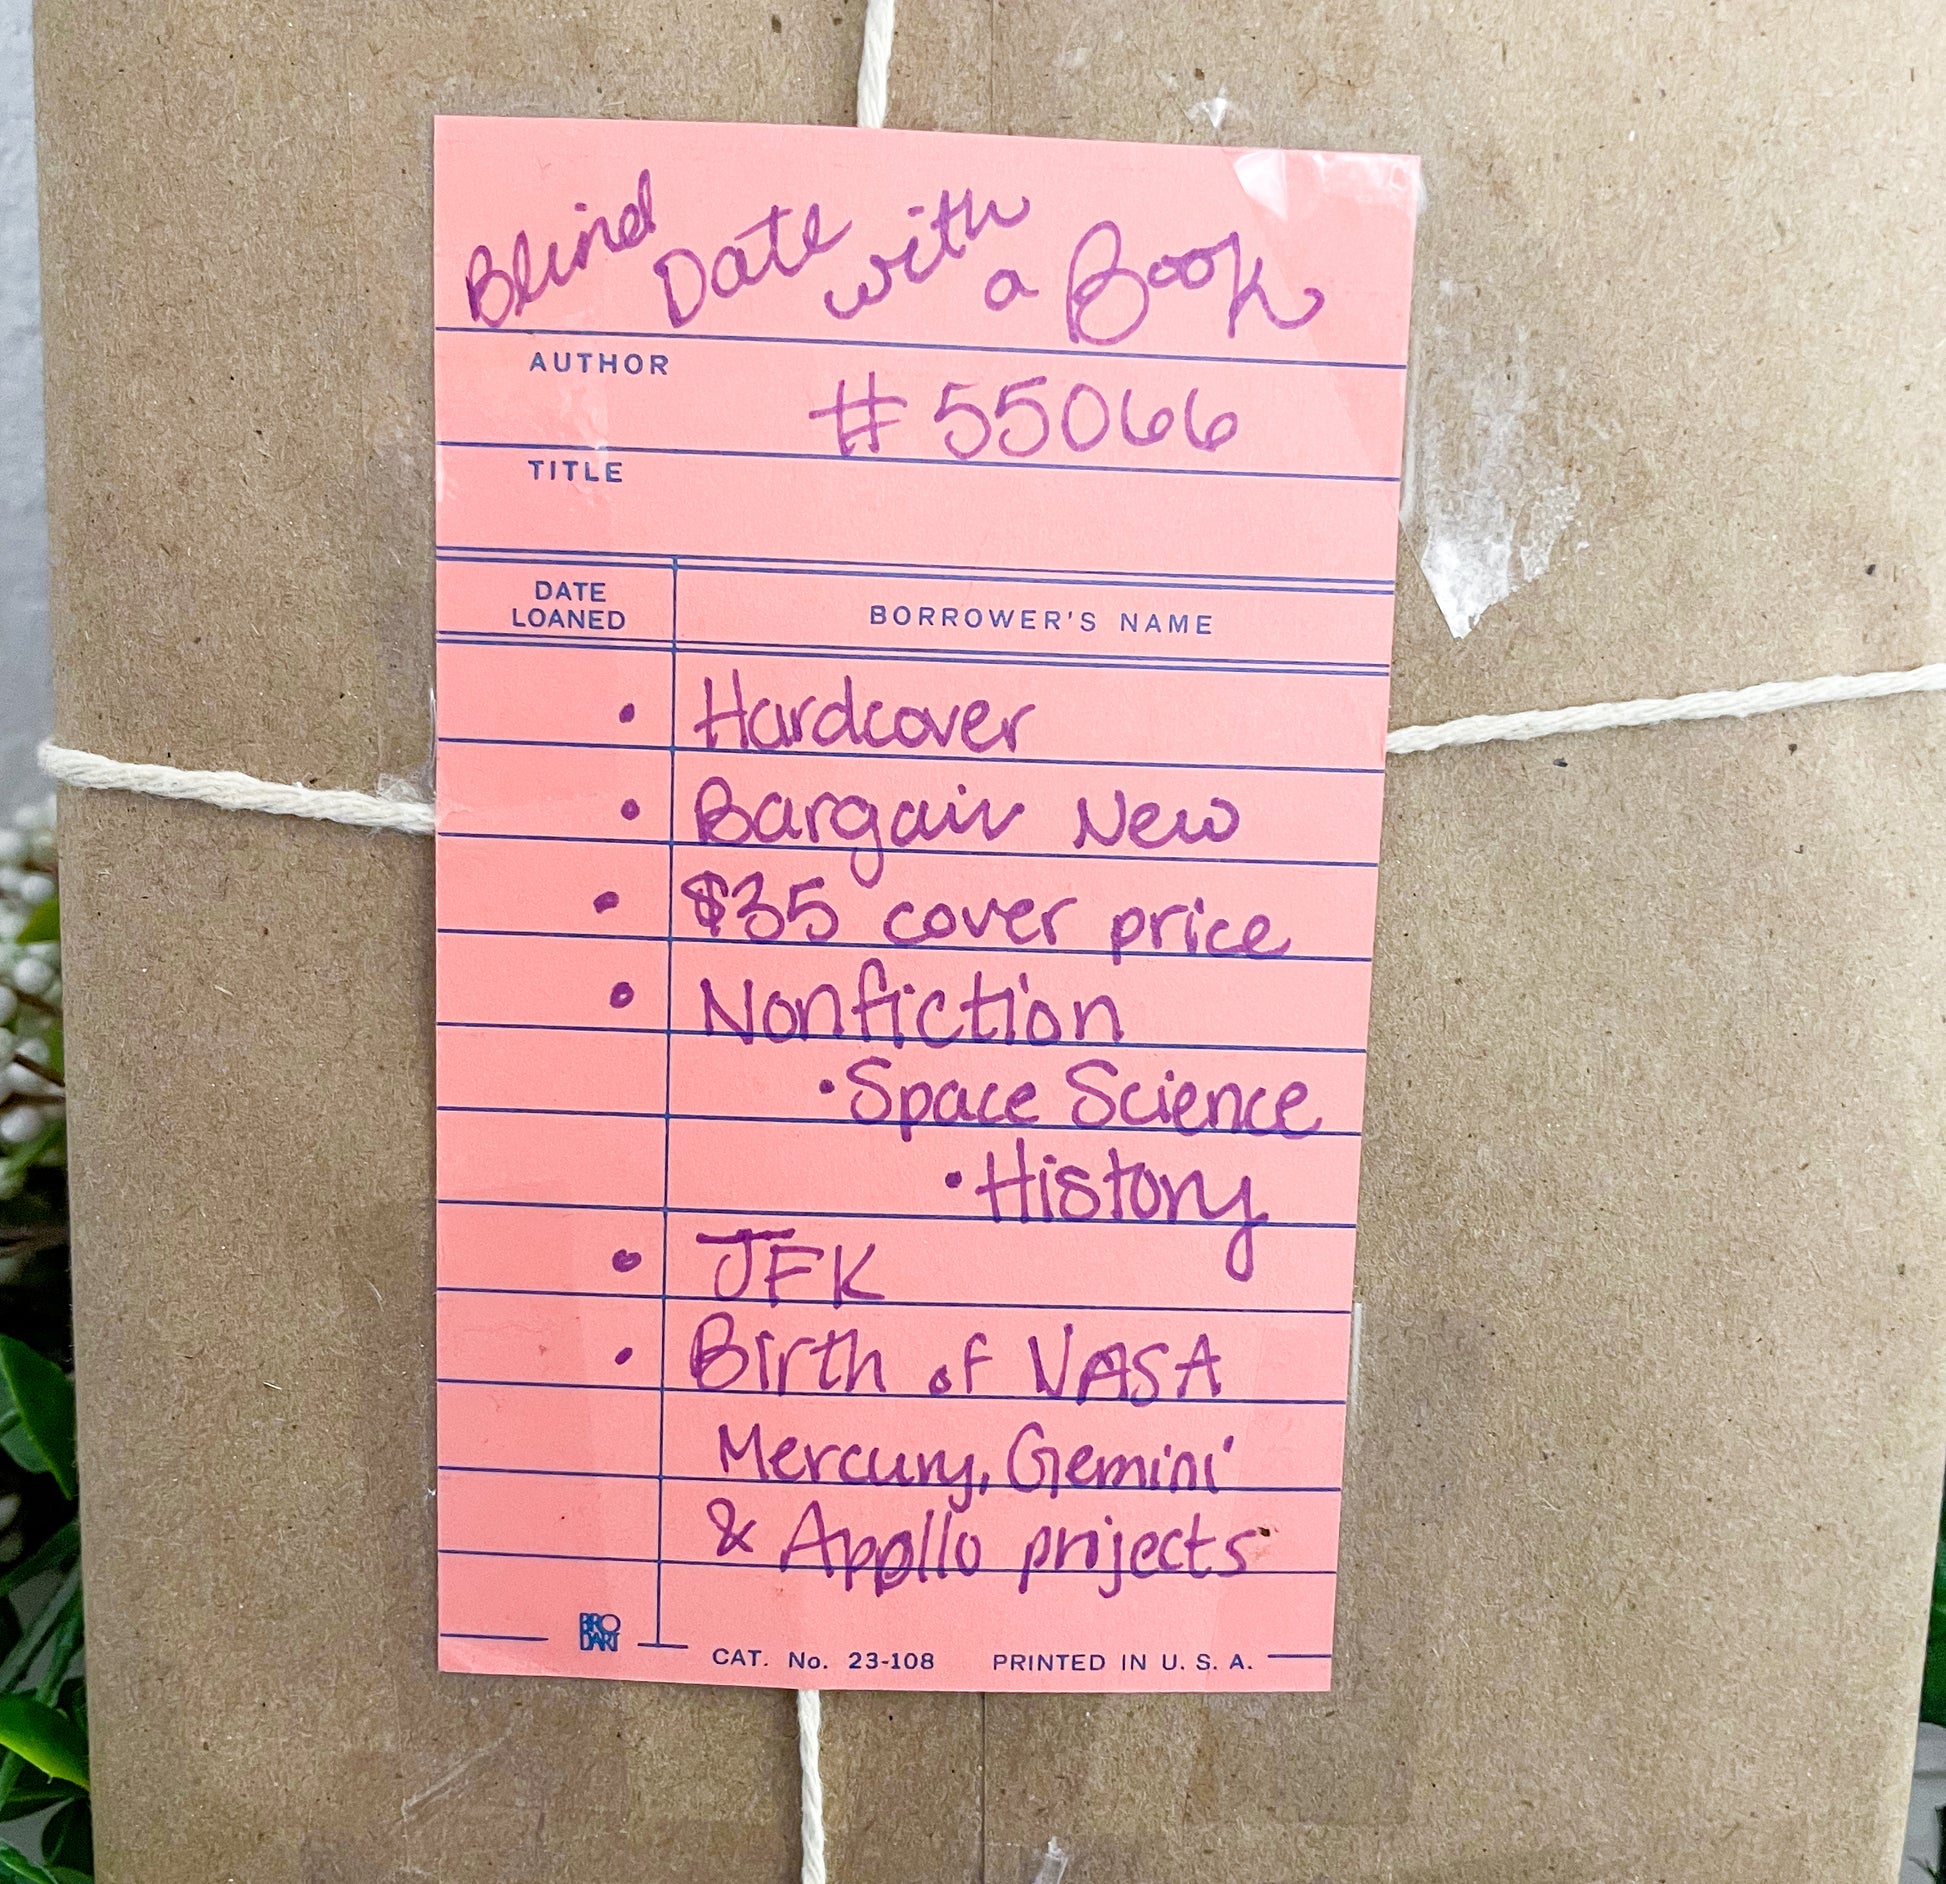 Blind Date with a Book
AUTHOR
# 55066
TITLE
DATE LOANED
BORROWER'S NAME
• Hardcover
• Bargain New
• $35 cover price
• Nonfiction
• Space Science
• History
• JFK
• Birth of NASA
Mercury, Gemini
& Apollo projects
BRO
DART
CAT. No. 23-108 PRINTED IN U. S. A.